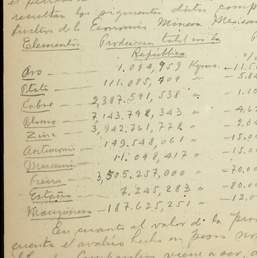 resultan los siguientes datos comp
ductor de la Economía Minera Mexican
Elementos Produccion total en la
República
Oro — 1,014,959 Kgmos. — 11.5
Plata — 111,085,409 " — 5.84
Cobre — 2,387,591,538 " — 1.10
Plomo — 7,143,798,343 " — 4.6
Zinc — 3,942,761,778 " — 2.
Antimonio — 149,548,061 " — 15.0
Mercurio — 11,048,417 " — 15.
Fierro — 3,505,257,000 " — 70.00
Estaño — 7,245,283 " — 80.0
Manganeso — 187,625,251 " — 12.0
En cuanto al valor de la pro
cuenta el avalúo hecho en pesos
viene a ser, a